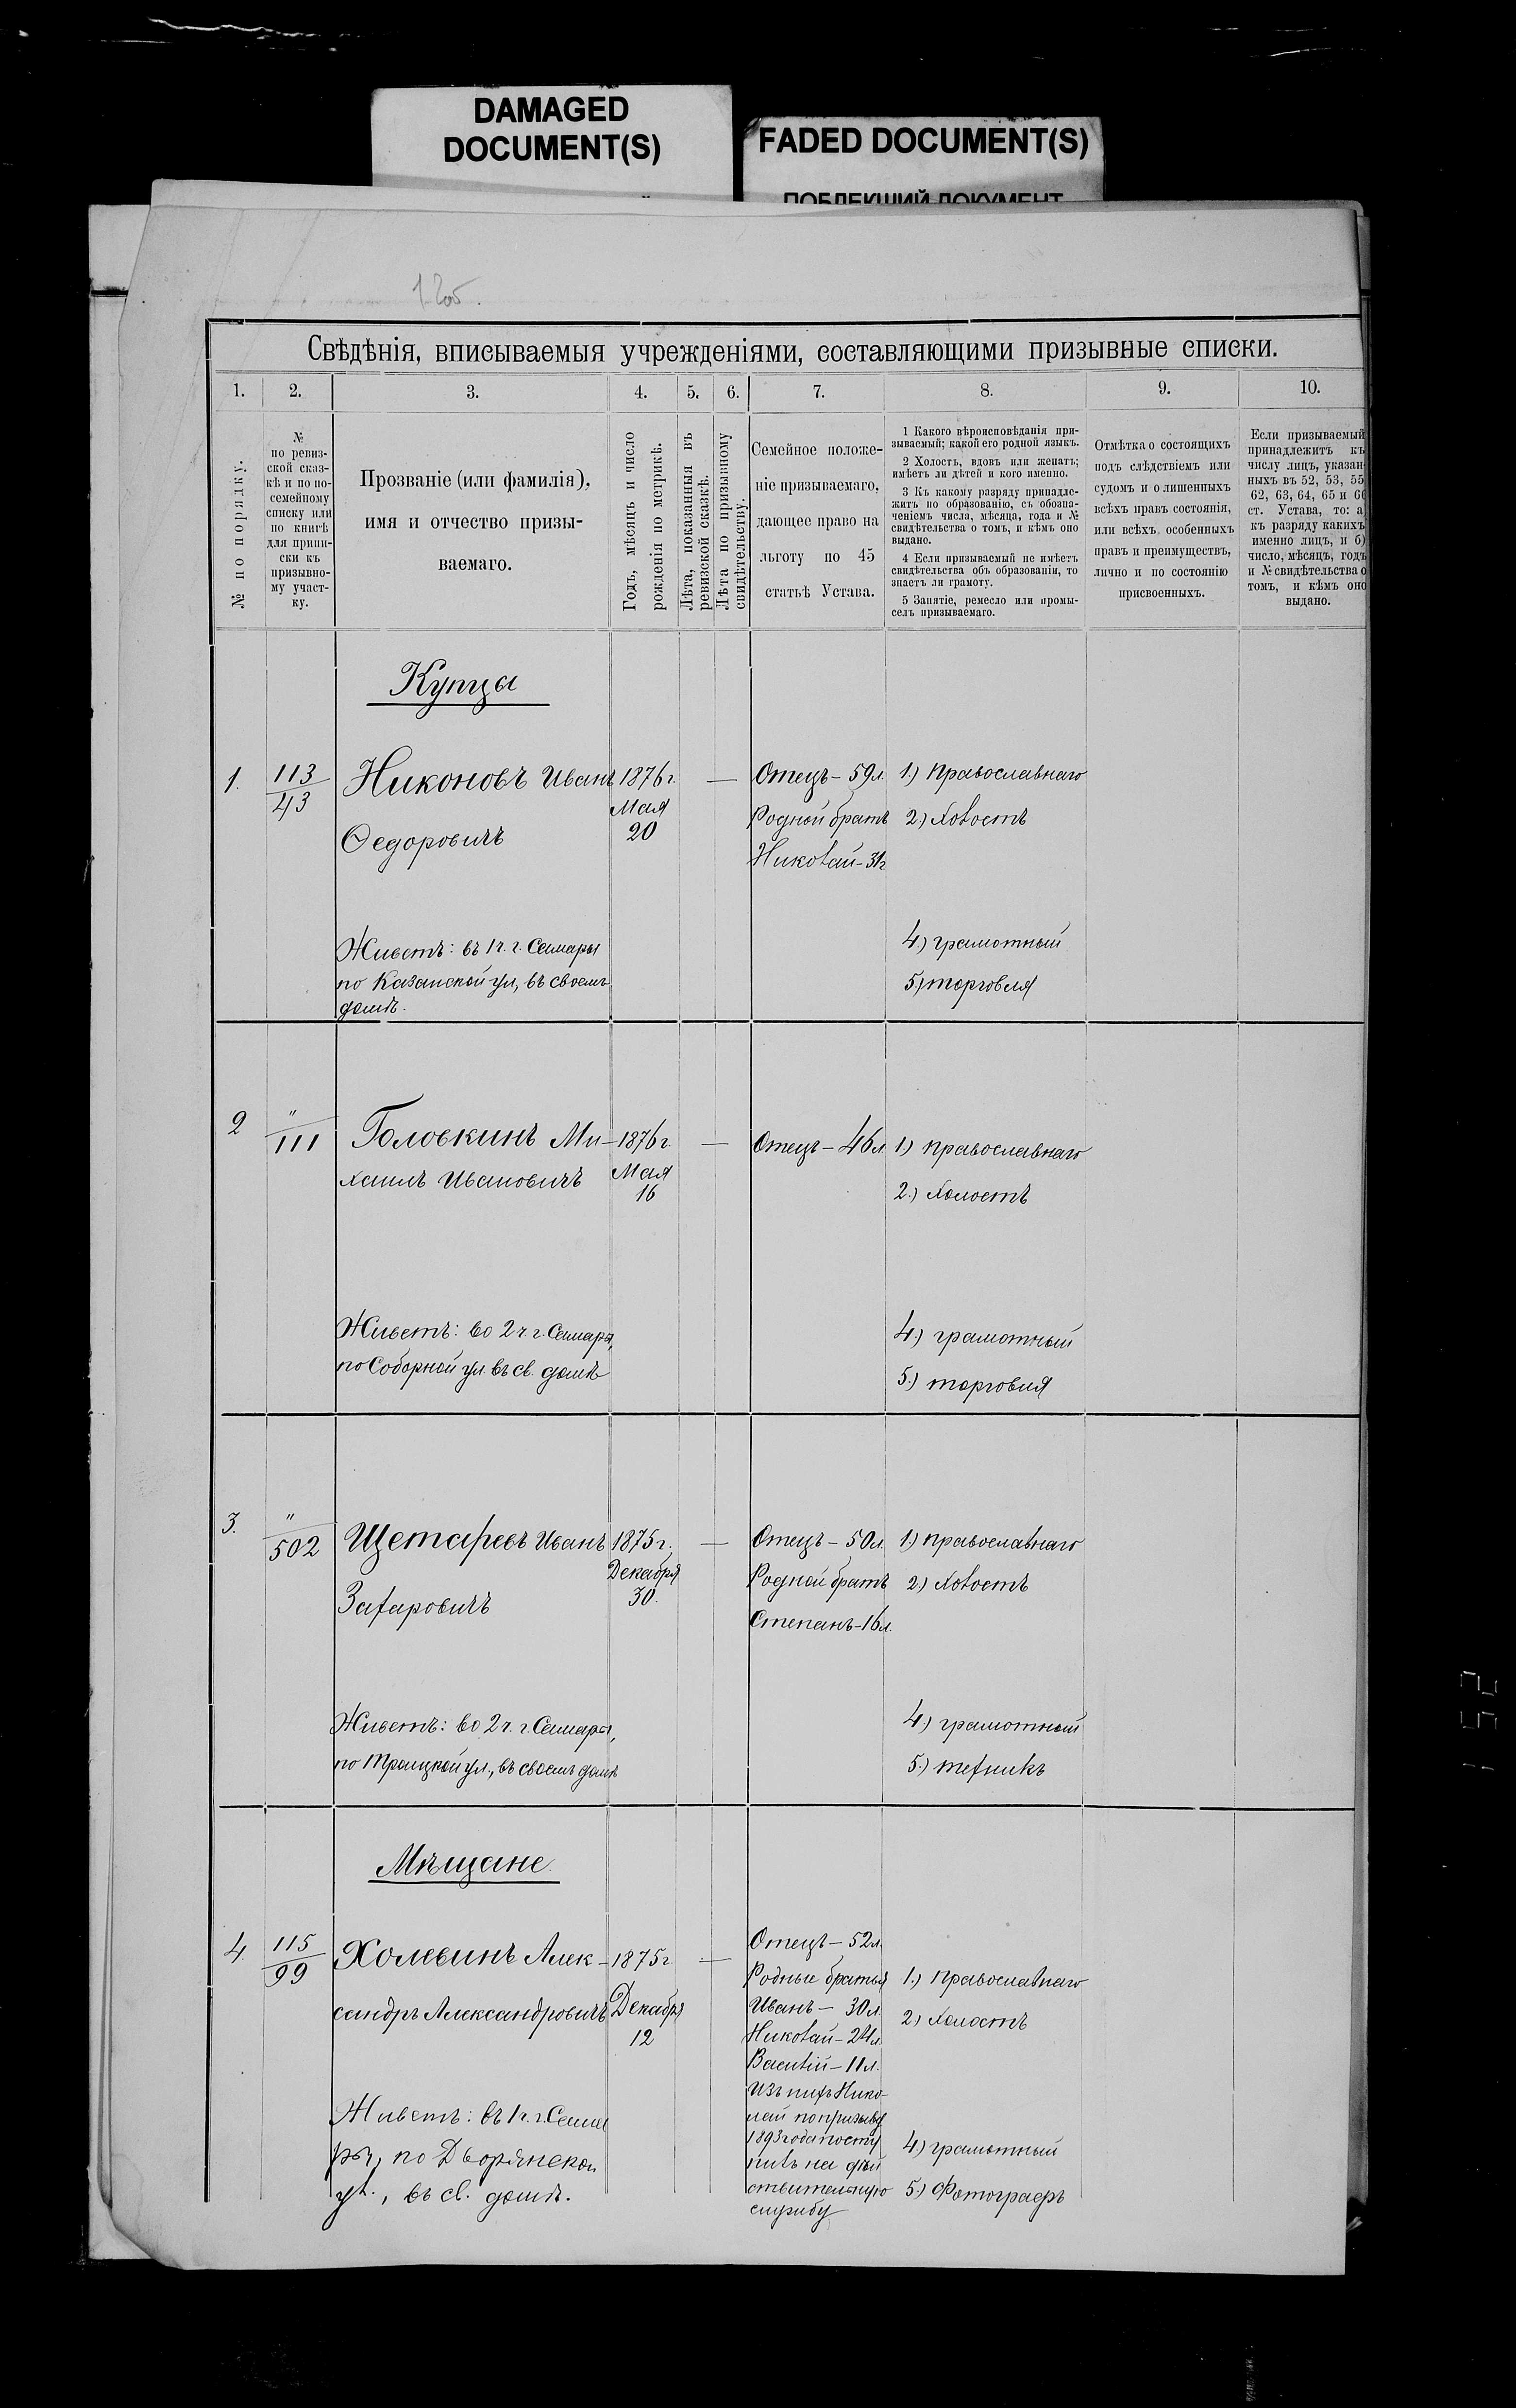 DAMAGED
DOCUMENT(S)
FADED DOCUMENT(S)
ПОБЛЕКШИЙ ДОКУМЕНТ
Свѣдѣнія, вписываемыя учрежденіями, составляющими призывные списки.
1. 2. 3. 4. 5. 6. 7. 8. 9. 10.
№ по порядку.
№
по ревиз-
ской сказ-
кѣ и по по-
семейному
списку или
по книгѣ
для припи-
ски къ
призывно-
му участ-
ку.
Прозваніе (или фамилія),
имя и отчество призы-
ваемаго.
Годъ, мѣсяцъ и число
рожденія по метрикѣ.
Лѣта, показанныя въ
ревизской сказкѣ.
Лѣта по призывному
свидѣтельству.
Семейное положе-
ніе призываемаго,
дающее право на
льготу по 45
статьѣ Устава.
1 Какого вѣроисповѣданія при-
зываемый; какой его родной языкъ.
2 Холостъ, вдовъ или женатъ;
имѣетъ ли дѣтей и кого именно.
3 Къ какому разряду принадле-
житъ по образованію, съ обозна-
ченіемъ числа, мѣсяца, года и №
свидѣтельства о томъ, и кѣмъ оно
выдано.
4 Если призываемый не имѣетъ
свидѣтельства объ образованіи, то
знаетъ ли грамоту.
5 Занятіе, ремесло или промы-
селъ призываемаго.
Отмѣтка о состоящихъ
подъ слѣдствіемъ или
судомъ и о лишенныхъ
всѣхъ правъ состоянія,
или всѣхъ особенныхъ
правъ и преимуществъ,
лично и по состоянію
присвоенныхъ.
Если призываемый
принадлежитъ къ
числу лицъ, указан-
ныхъ въ 52, 53, 55
62, 63, 64, 65 и 66
ст. Устава, то: а)
къ разряду какихъ
именно лицъ, и б)
число, мѣсяцъ, годъ
и № свидѣтельства о
томъ, и кѣмъ оно
выдано.
Купца
1. 113
43
Никоновъ Иванъ
Федоровичъ
1876 г.
Мая
20
—
Отецъ – 59 л.
Родной братъ
Николай – 31 г
1.) Православнаго
2.) Холостъ
4.) грамотный
5.) торговля
Живетъ: въ 1 ч. г. Самары
по Казанской ул., въ своемъ
домѣ.
2 "
111
Головкинъ Ми-
хаилъ Ивановичъ
1876 г.
Мая
16
—
Отецъ – 46 л
1.) Православнаго
2.) Холостъ
4.) грамотный
5.) торговля
Живетъ: во 2 ч. г. Самары,
по Соборной ул. въ св. домѣ
3. "
502
Щетаревъ Иванъ
Захаровичъ
1875 г.
Декабря
30.
—
Отецъ – 50 л.
Родной братъ
Степанъ – 16 л.
1.) Православнаго
2.) Холостъ
4.) грамотный
5.) техникъ
Живетъ: во 2 ч. г. Самары,
по Троицкой ул., въ своемъ домѣ
Мѣщане.
4 115
99
Холевинъ Алек-
сандръ Александровичъ
1875 г.
Декабря
12
—
Отецъ – 52 л.
Родные братья
Иванъ – 30 л.
Николай – 24 л.
Василій – 11 л.
Изъ нихъ Нико-
лай по призыву
1893 года посту
пилъ на дѣй
ствительную
службу
1.) Православнаго
2.) Холостъ
4.) грамотный
5.) Фотографъ
Живетъ: въ 1 ч. г. Сама
ры, по Дворянской
ул., въ св. домѣ.
152